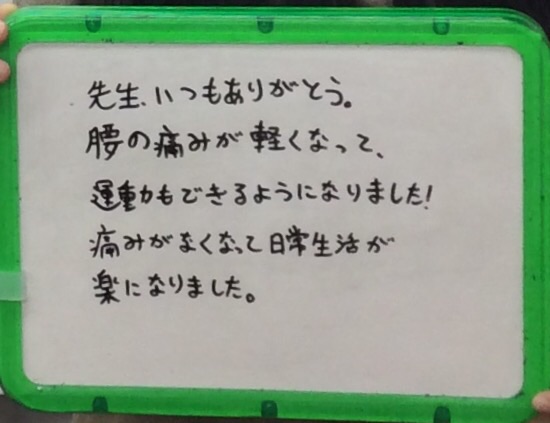 先生、いつもありがとう。
腰の痛みが軽くなって、
運動もできるようになりました!
痛みがなくなって日常生活が
楽になりました。